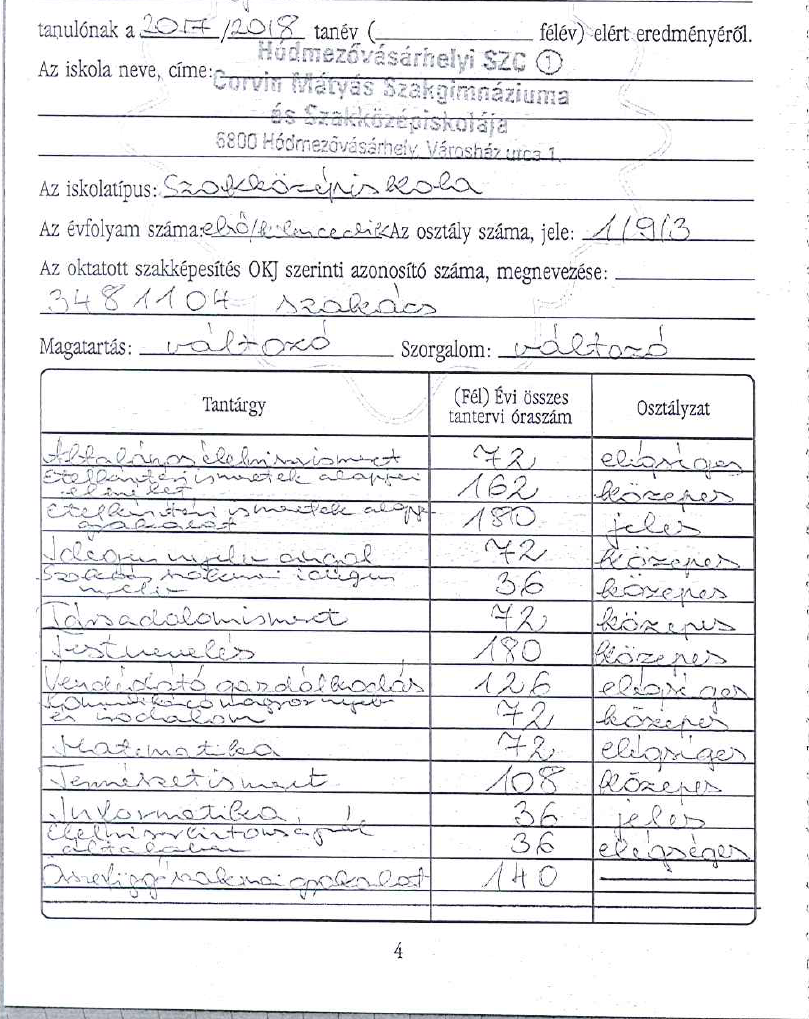 tanulónak a 2017/2018 tanév ( félév) elért eredményéről.
Hódmezővásárhelyi SZC 1
Az iskola neve, címe: Corvin Mátyás Szakgimnáziuma
és Szakközépiskolája
6800 Hódmezővásárhely, Városház utca 1.
Az iskolatípus: Szakközépiskola
Az évfolyam száma: első/kilencedik Az osztály száma, jele: 1/9/3
Az oktatott szakképesítés OKJ szerinti azonosító száma, megnevezése:
34 811 04 szakács
Magatartás: változó Szorgalom: változó
Tantárgy (Fél) Évi összes tantervi óraszám Osztályzat
Általános élelmiszerismeret 72 elégséges
Ételkészítési ismeretek alapjai
elmélet 162 közepes
Ételkészítési ismeretek alapjai
gyakorlat 180 jeles
Idegen nyelv angol 72 közepes
Szakács szakmai idegen
nyelv 36 közepes
Társadalomismeret 72 közepes
Testnevelés 180 közepes
Vendéglátó gazdálkodás 126 elégséges
Kommunikáció magyar nyelv
és irodalom 72 közepes
Matematika 72 elégséges
Természetismeret 108 közepes
Informatika 36 jeles
Élelmiszerbiztonságról
általában 36 elégséges
Összefüggő szakmai gyakorlat 140
4